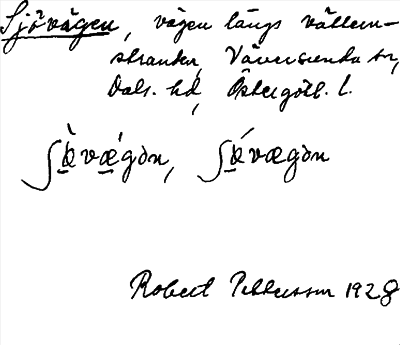 Sjövägen, vägen längs vättern-
stranden, Väversunda sn,
Dals. hd, Östergötl. l.
ʃɵ̀vǽgən, ʃɵ́vægən
Robert Pettersson 1928